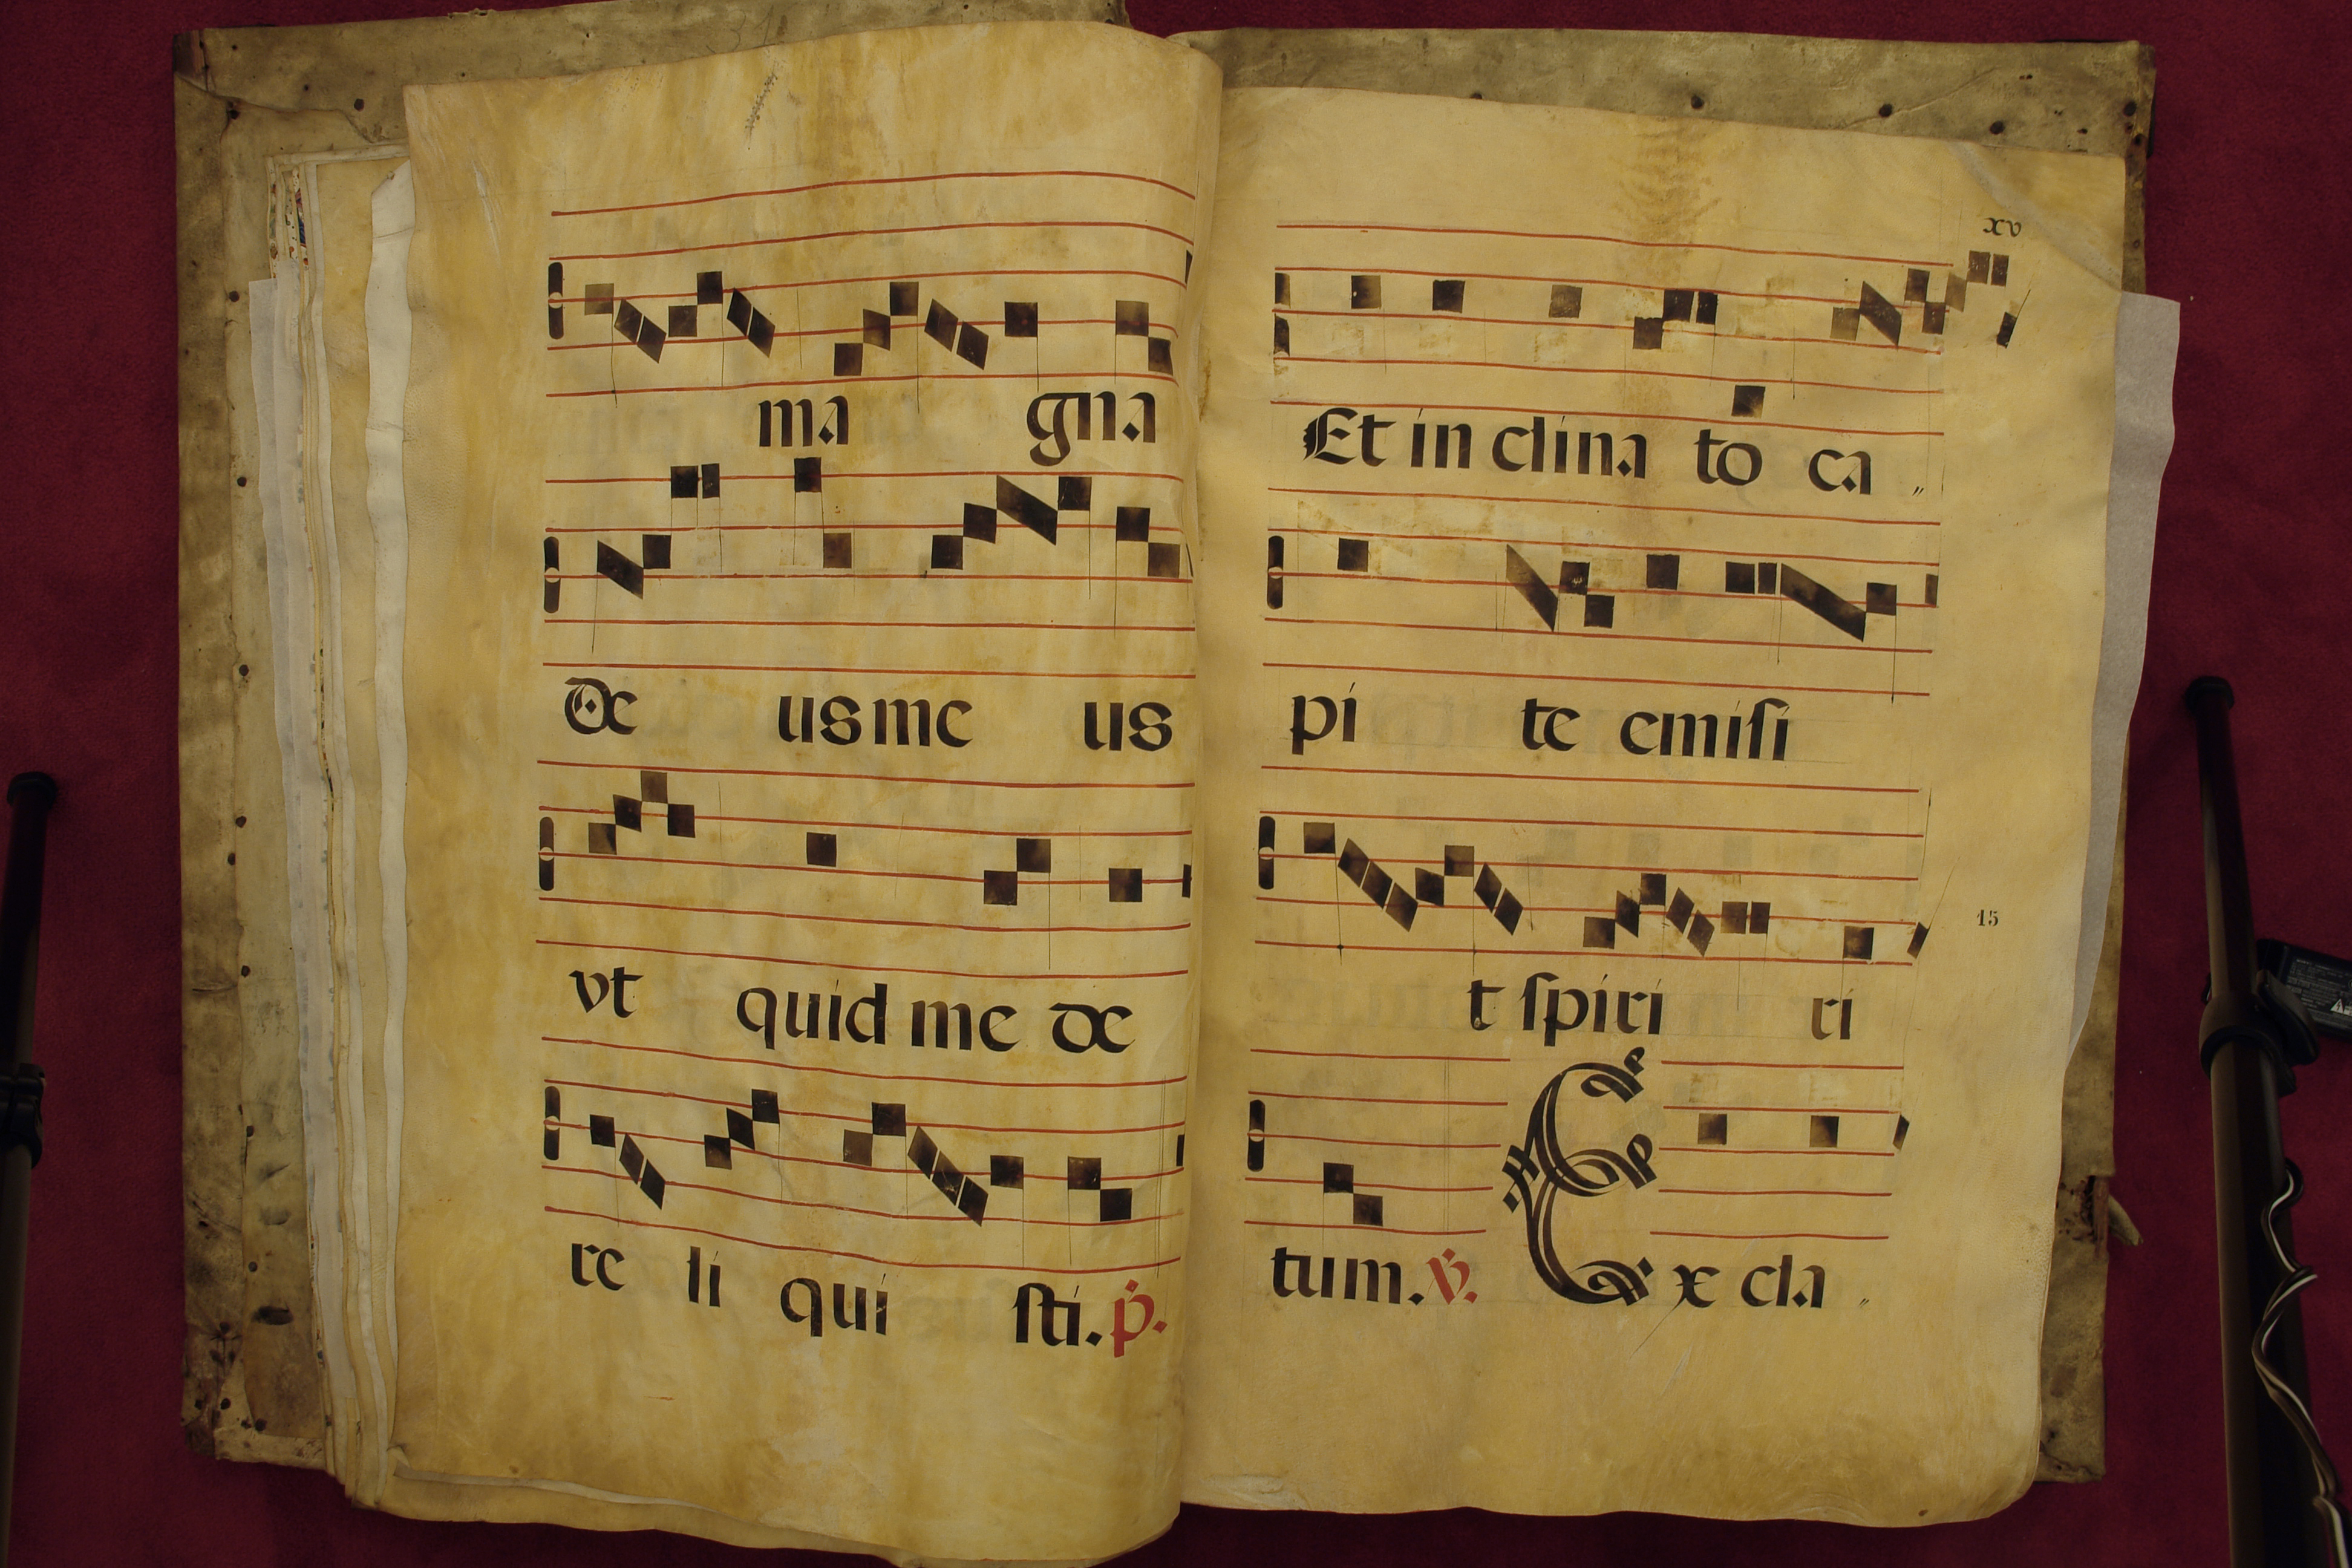 ma gna
de us me us
vt quid me de
re li qui sti. p.
xv
Et in clina to ca „
pi te emisi
15
t spiri ri
tum. v. Ex cla „